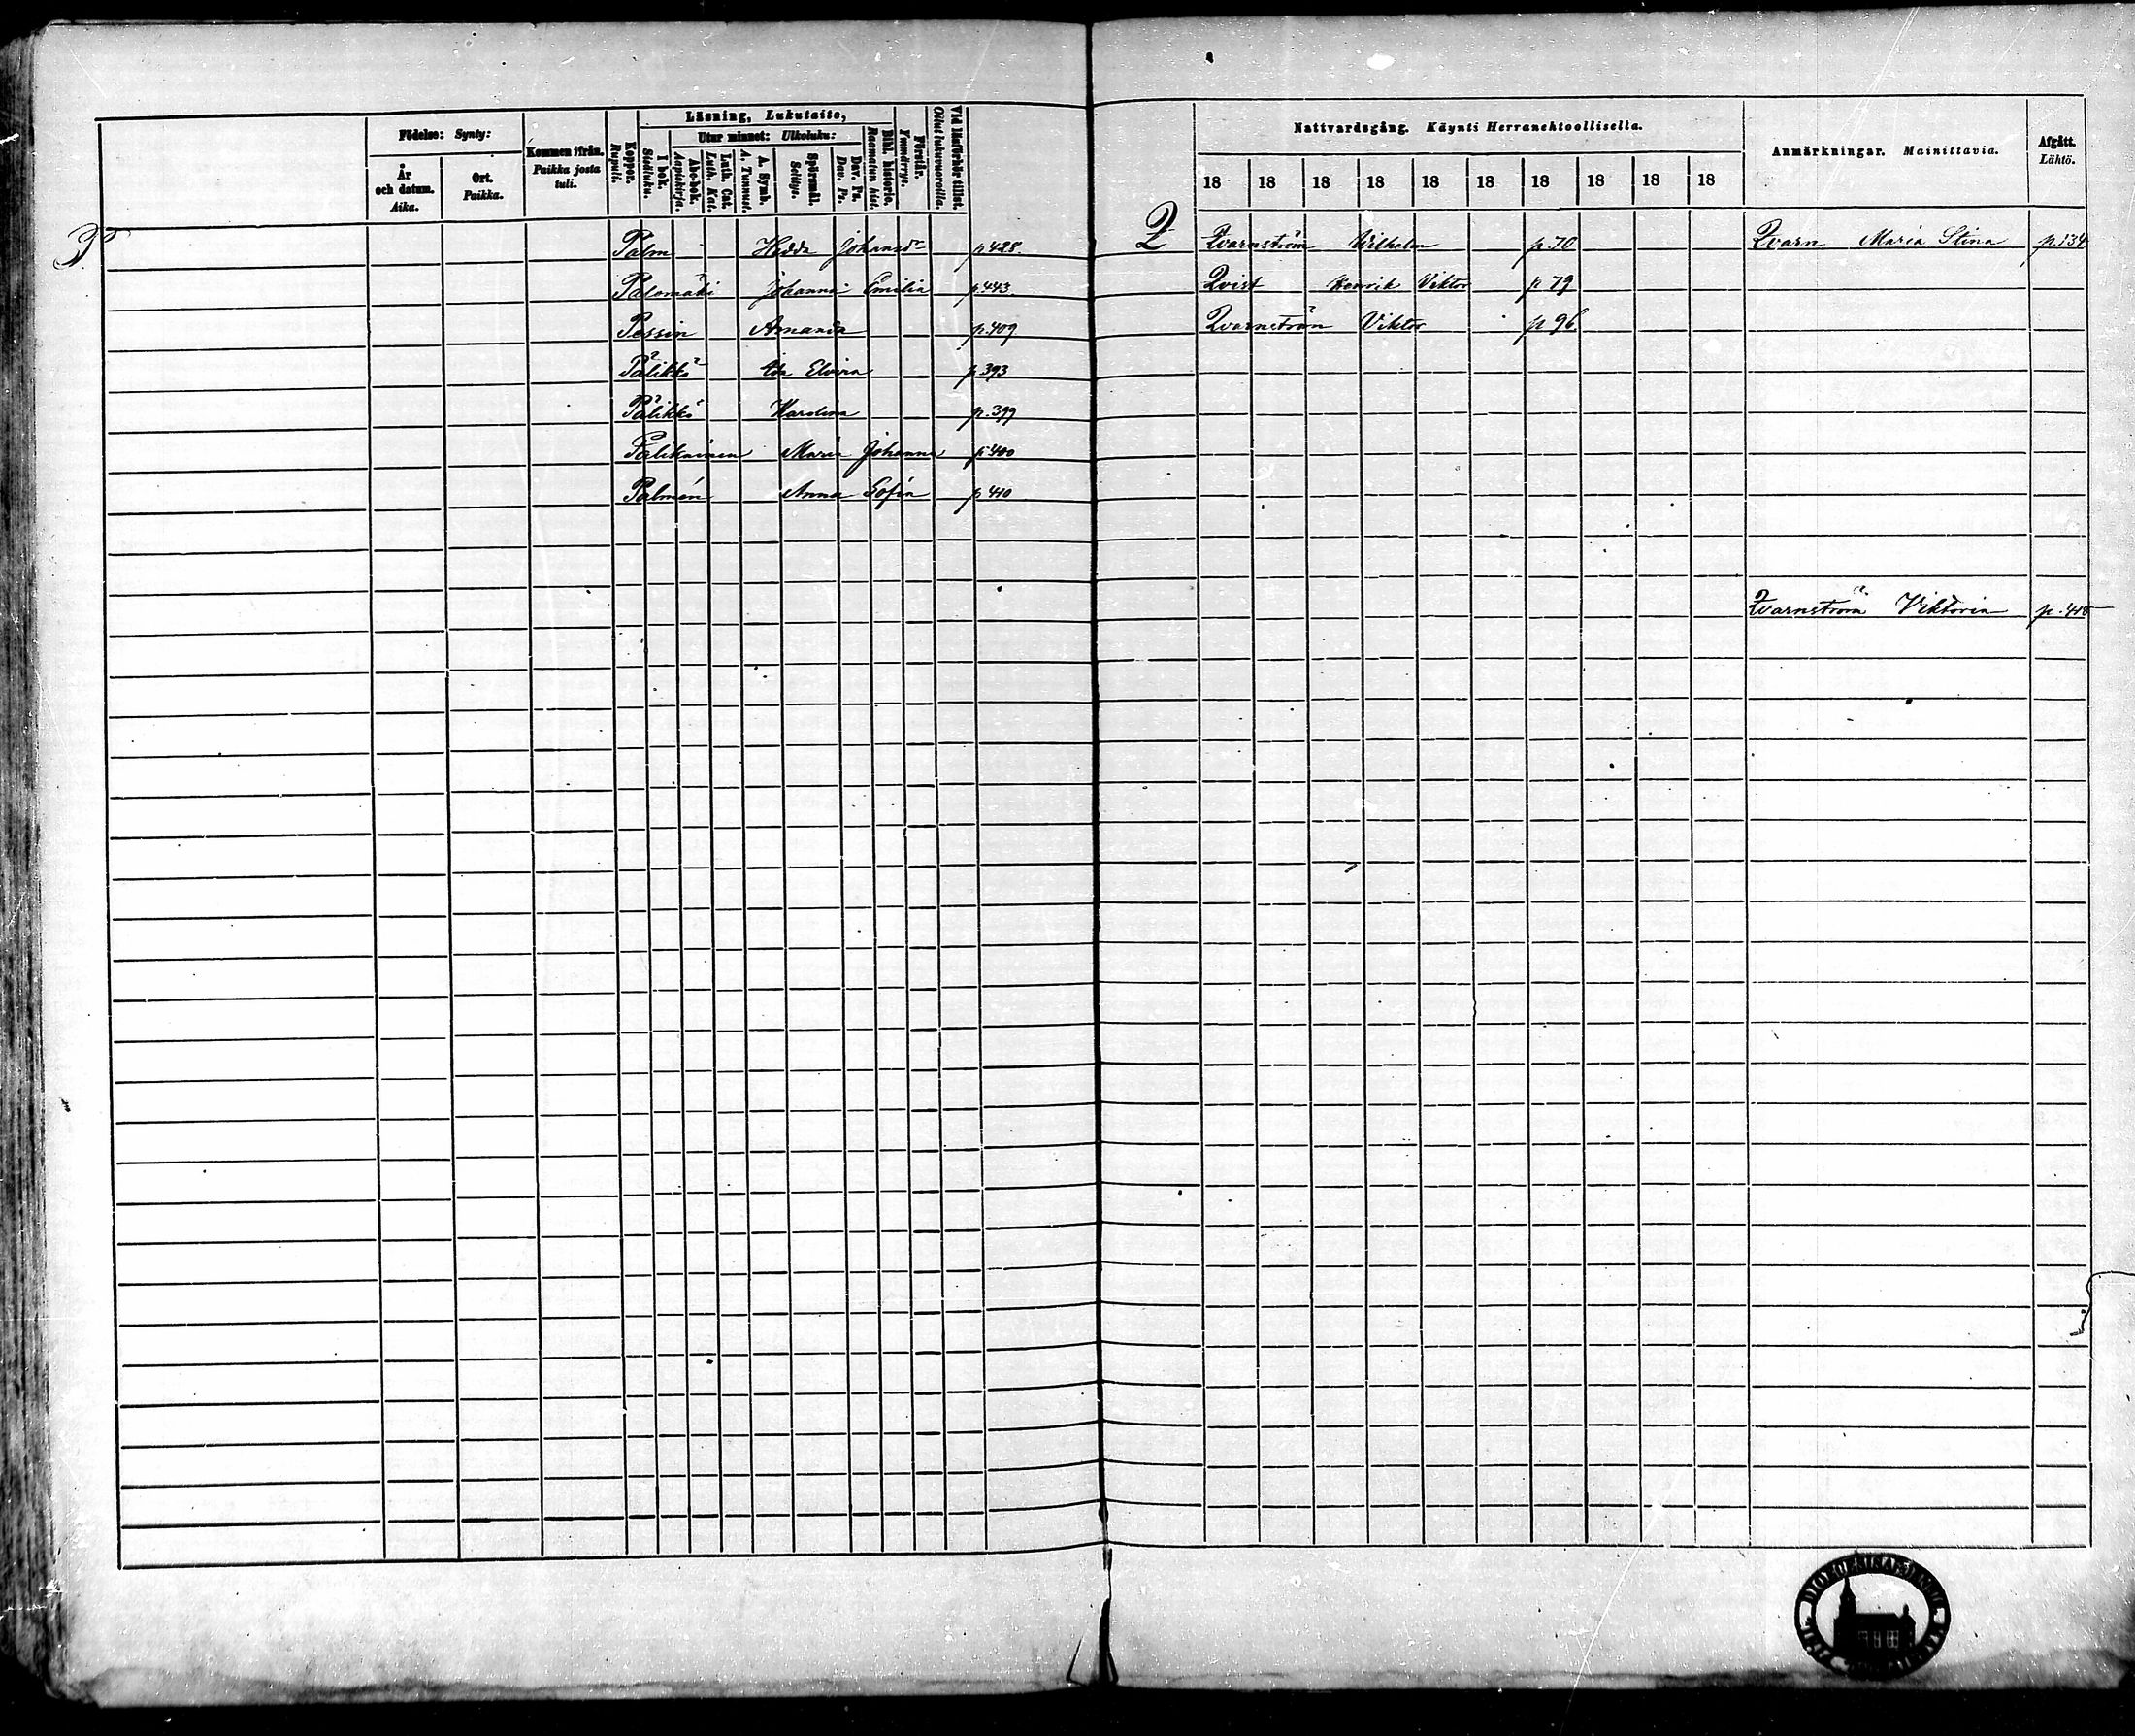 Läsning, Lukutaito,
Födelse: Synty:
Utur minnet: Ulkoluku:
År och datum. Aika.
Ort. Paikka.
Kommen ifrån. Paikka josta tuli.
Koppor. Rupuli.
I bok. Sisäluku.
Abc-bok. Aapiskirja.
Luth. Cat. Luth. Kat.
A. Symb. A. Tunnust.
Spörsmål. Selitys.
Dav. Ps. Dav. Ps.
Bibl. historia. Raamatun hist.
Förstår. Ymmärrys.
Vid läsförhör tillst. Ollut lukuvuoroilla.
P.
Palm Hedda Johansdr p.428.
Palomäki Johanna Emilia p.443.
Pessin Amanda p.409
Pälikkö Ida Elvira p.393
Pälikkö Karolina p.399
Pälikäinen Maria Johanna p.400
Palmén Anna Sofia p.410
Nattvardsgång. Käynti Herranehtoollisella.
Anmärkningar. Mainittavia.
Afgått. Lähtö.
18 18 18 18 18 18 18 18 18 18
Q
Qvarnström Vilhelm p.70
Qvarn Maria Stina p.134
Qvist Henrik Viktor p.79
Qvarnström Viktor p.96
Qvarnström Viktoria p.418